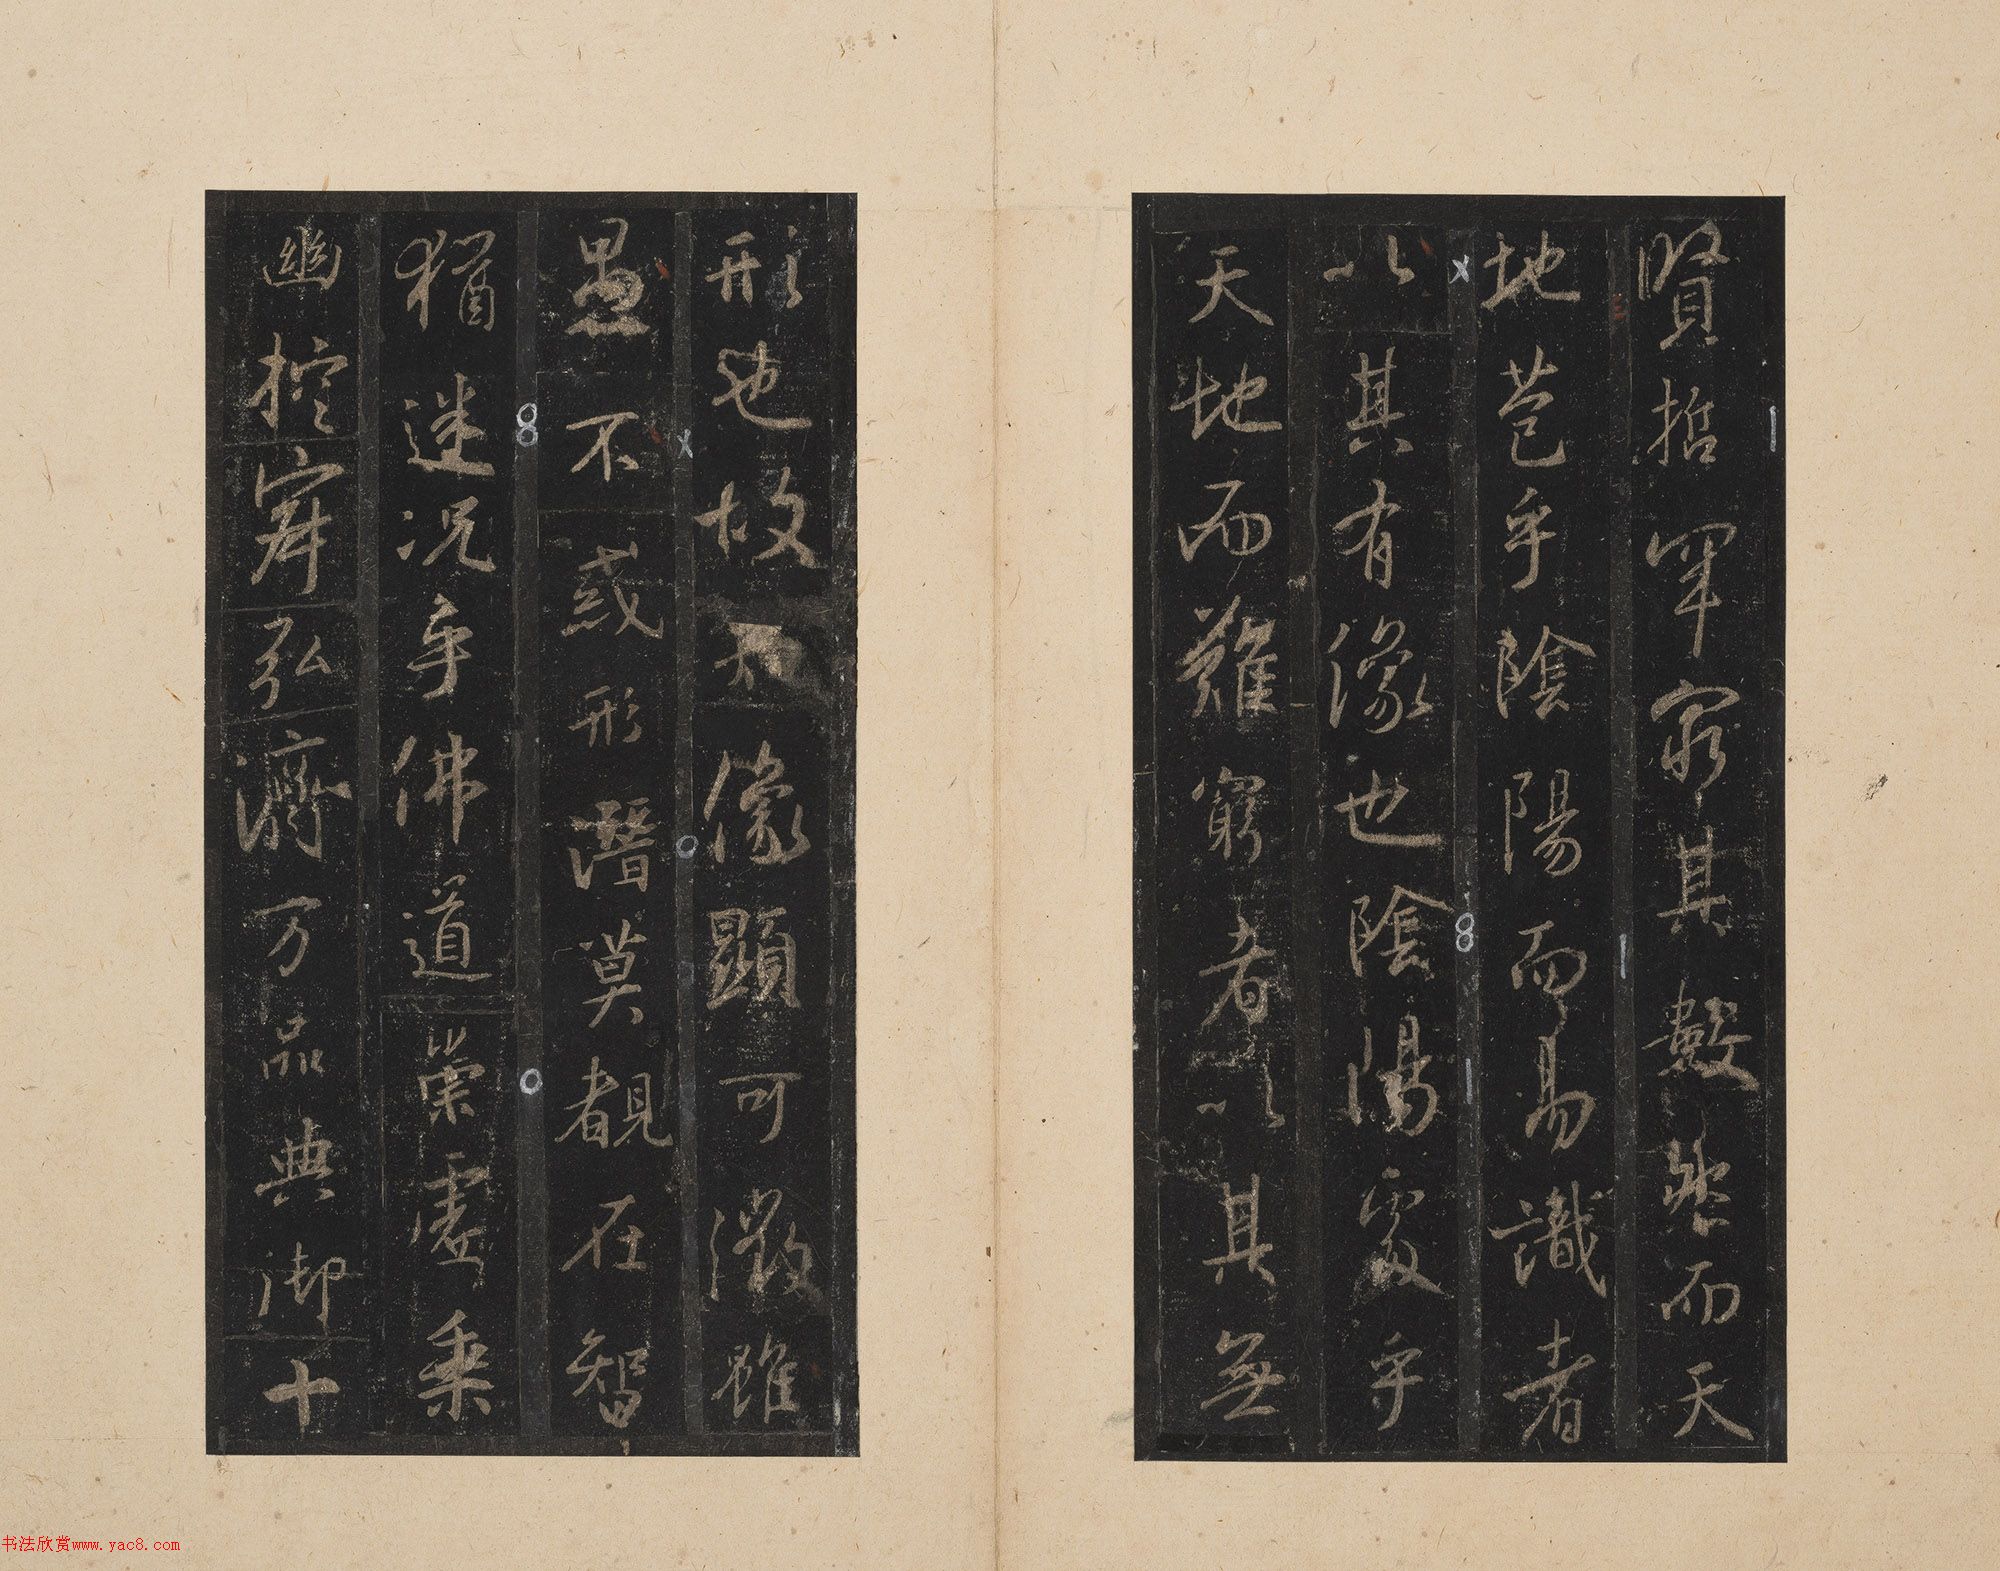 賢哲罕窮其數然而天
地苞乎陰陽而易識者
以其有像也陰陽處乎
天地而難窮者以其無
形也故知像顯可徵雖
愚不惑形潛莫覩在智
猶迷況乎佛道崇虛乘
幽控寂弘濟万品典御十
书法欣赏www.yac8.com